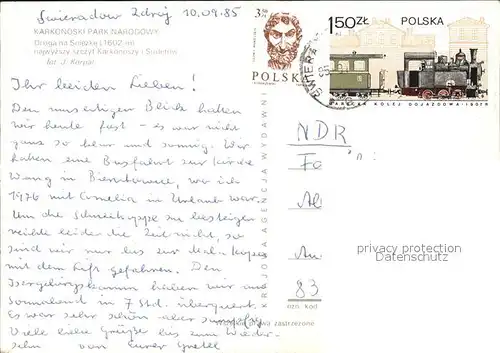 Świeradów Zdrój 10.09.85
KARKONOSKI PARK NARODOWY
Droga na Śnieżkę (1602 m)
najwyższy szczyt Karkonoszy i Sudetów
fot. J. Korpal
Ihr beiden Lieben!
Den umseitigen Blick hatten
wir heute fast – es war nicht
ganz so klar und sonnig. Wir
hatten eine Busfahrt zur Kirche
Wang in Bierutowice, wo ich
1976 mit Cornelia in Urlaub war.
Um die Schneekoppe zu besteigen
reichte leider die Zeit nicht, so
sind wir nur bis zur
mit dem Lift gefahren. Den
Isergebirgskamm haben wir am
Sonnabend in 7 Std. überquert.
Es war sehr schön aber
Viele liebe Grüße bis zum Wieder-
sehn von Eurer Gretel
3,50 ZŁ
POLSKA
1,50 ZŁ
POLSKA
KOLEJ DOJAZDOWA
KRAJOWA AGENCJA WYDAWNICZA
NDR
83
ozn. kod
prawa zastrzeżone
privacy protection
Datenschutz